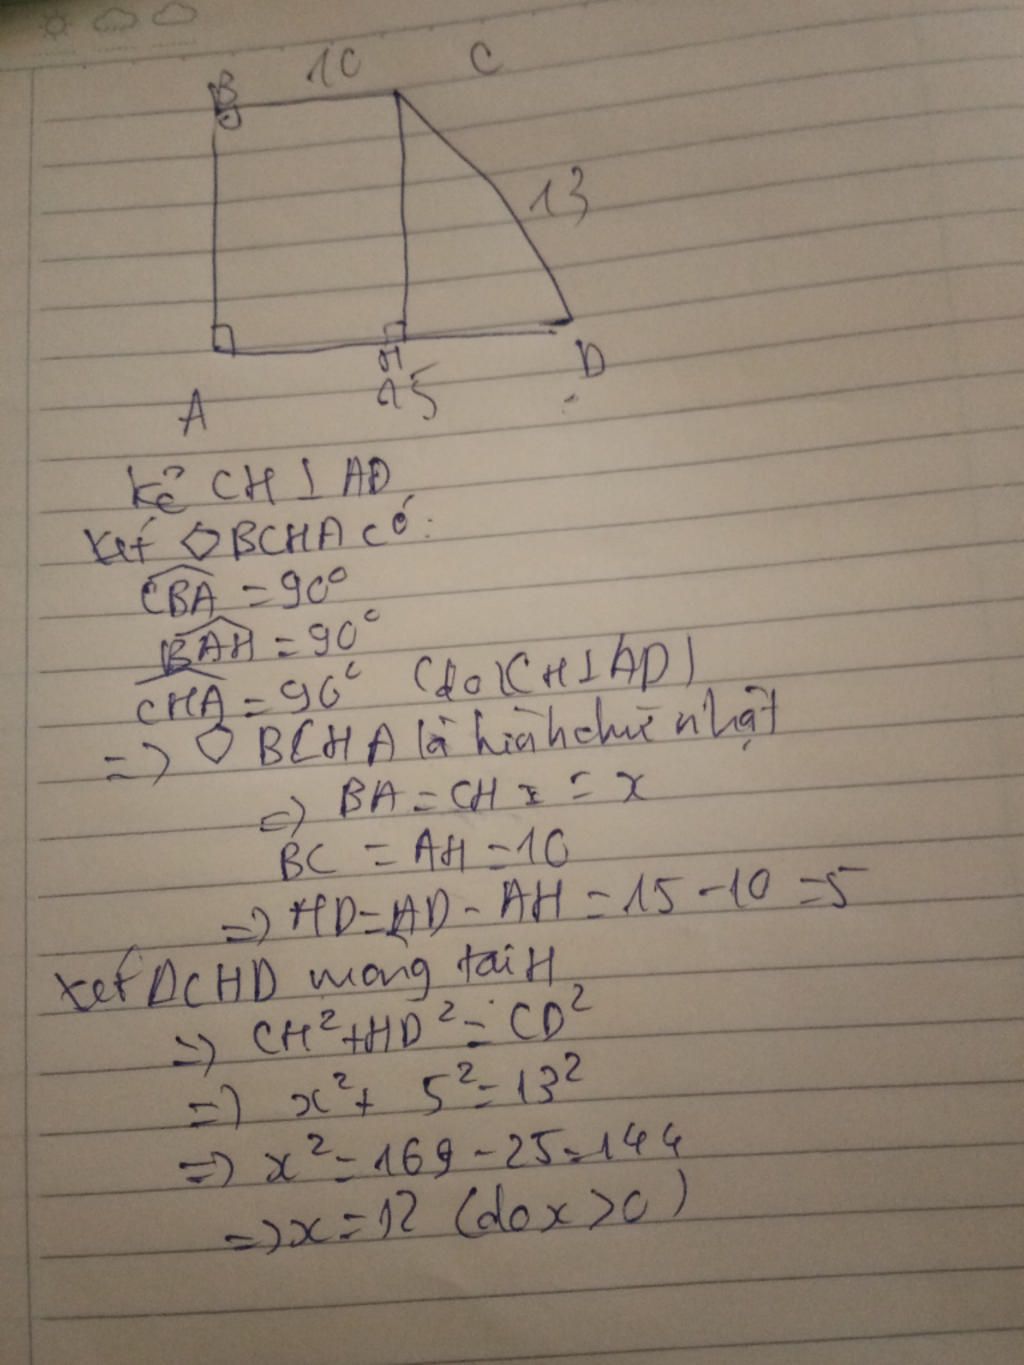 B 10 C
13
H D
25
A
kẻ CH ⊥ AD
Xét ◇BCHA có:
CBA = 90°
BAH = 90°
CHA = 90° (do CH ⊥ AD)
=> ◇ BCHA là hình chữ nhật
=> BA = CH = x
BC = AH = 10
=> HD = AD - AH = 15 - 10 = 5
Xét ΔCHD vuông tại H
=> CH² + HD² = CD²
=> x² + 5² = 13²
=> x² = 169 - 25 = 144
=> x = 12 (do x > 0)